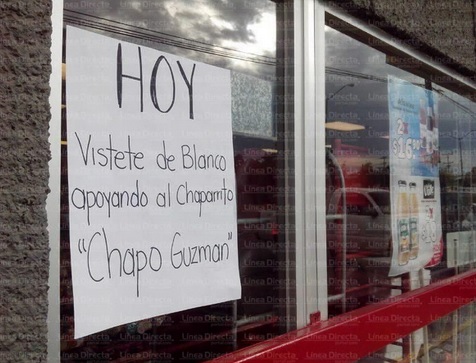 HOY
Vistete de Blanco
apoyando al Chaparrito
"Chapo Guzman"
Línea Directa